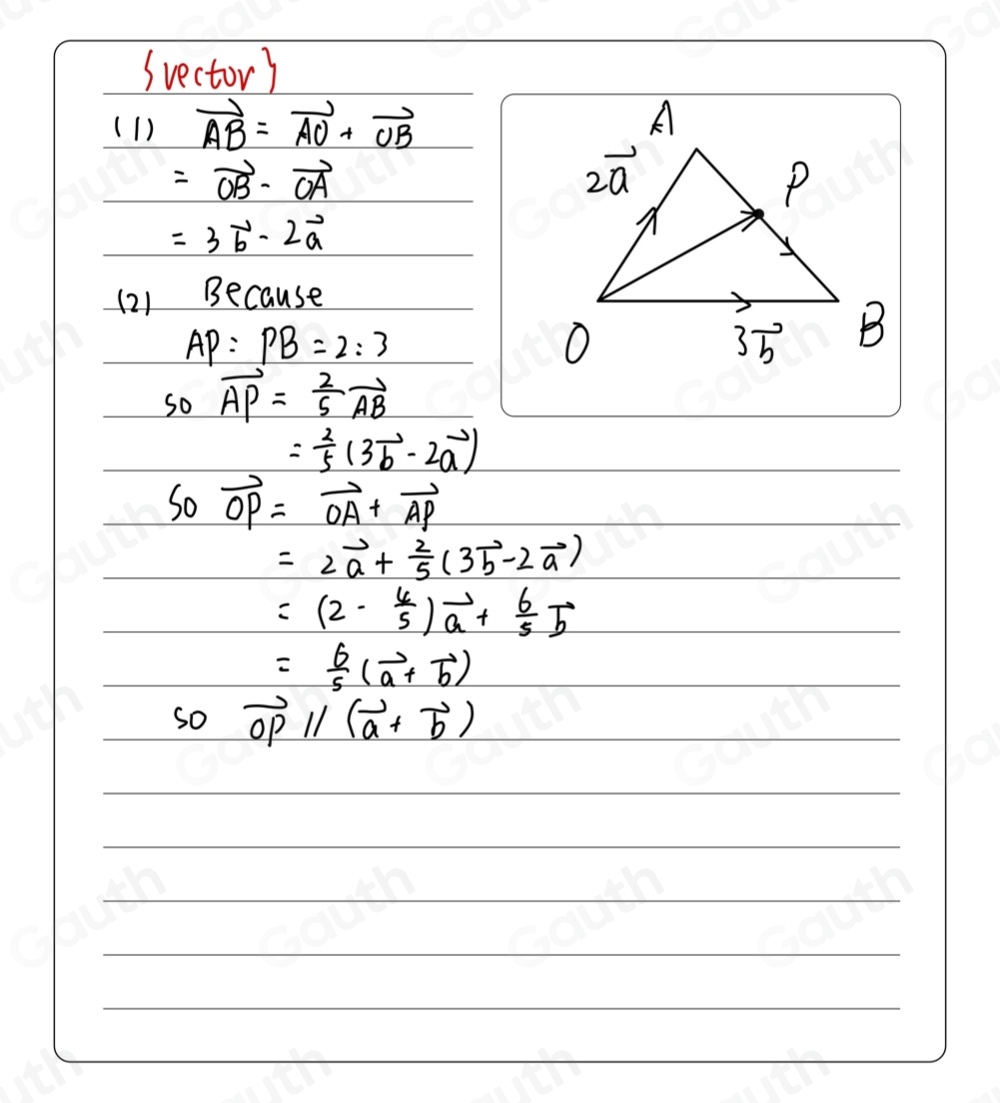 {vector}
(1) $\overrightarrow{AB} = \overrightarrow{AO} + \overrightarrow{OB}$
$= \overrightarrow{OB} - \overrightarrow{OA}$
$= 3\vec{b} - 2\vec{a}$
(2) Because
AP : PB = 2 : 3
so $\overrightarrow{AP} = \frac{2}{5}\overrightarrow{AB}$
$= \frac{2}{5}(3\vec{b} - 2\vec{a})$
So $\overrightarrow{OP} = \overrightarrow{OA} + \overrightarrow{AP}$
$= 2\vec{a} + \frac{2}{5}(3\vec{b} - 2\vec{a})$
$= (2 - \frac{4}{5})\vec{a} + \frac{6}{5}\vec{b}$
$= \frac{6}{5}(\vec{a} + \vec{b})$
so $\overrightarrow{OP} // (\vec{a} + \vec{b})$
A
$2\vec{a}$
P
O
$3\vec{b}$
B
Gauth